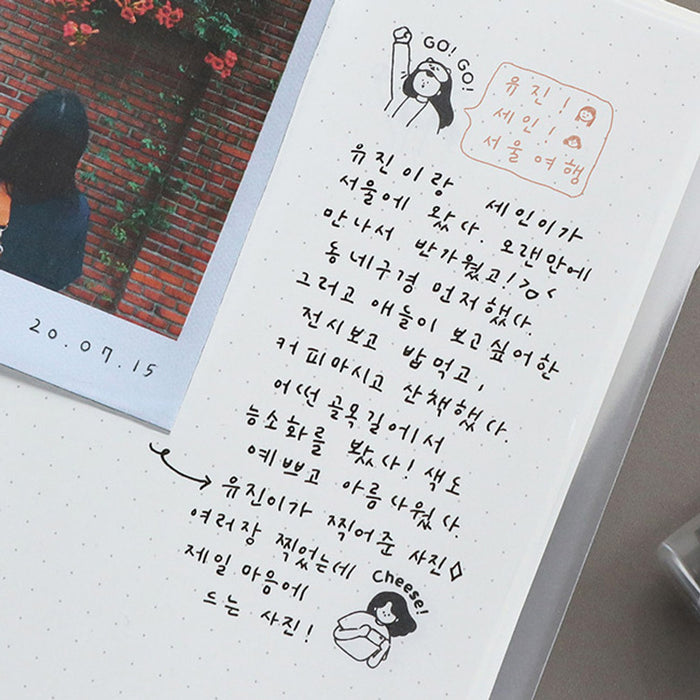 GO! GO!
유진!
세인!
서울여행
유진이랑 세인이가
서울에 왔다. 오랜만에
만나서 반가웠고!
동네구경 먼저했다.
그리고 애들이 보고싶어한
전시보고 밥먹고,
커피마시고 산책했다.
어떤 골목길에서
능소화를 봤다! 색도
예쁘고 아름다웠다.
유진이가 찍어준 사진
여러장 찍었는데
제일 마음에
드는 사진!
Cheese!
20.07.15